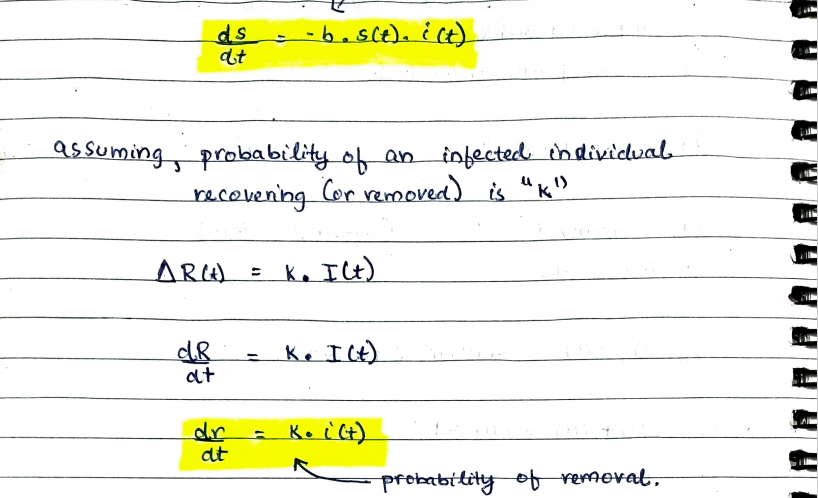 ds/dt = - b . s(t) . i(t)
assuming, probability of an infected individual
recovering (or removed) is "K"
ΔR(t) = K . I(t)
dR/dt = K . I(t)
dr/dt = K . i(t)
probability of removal.